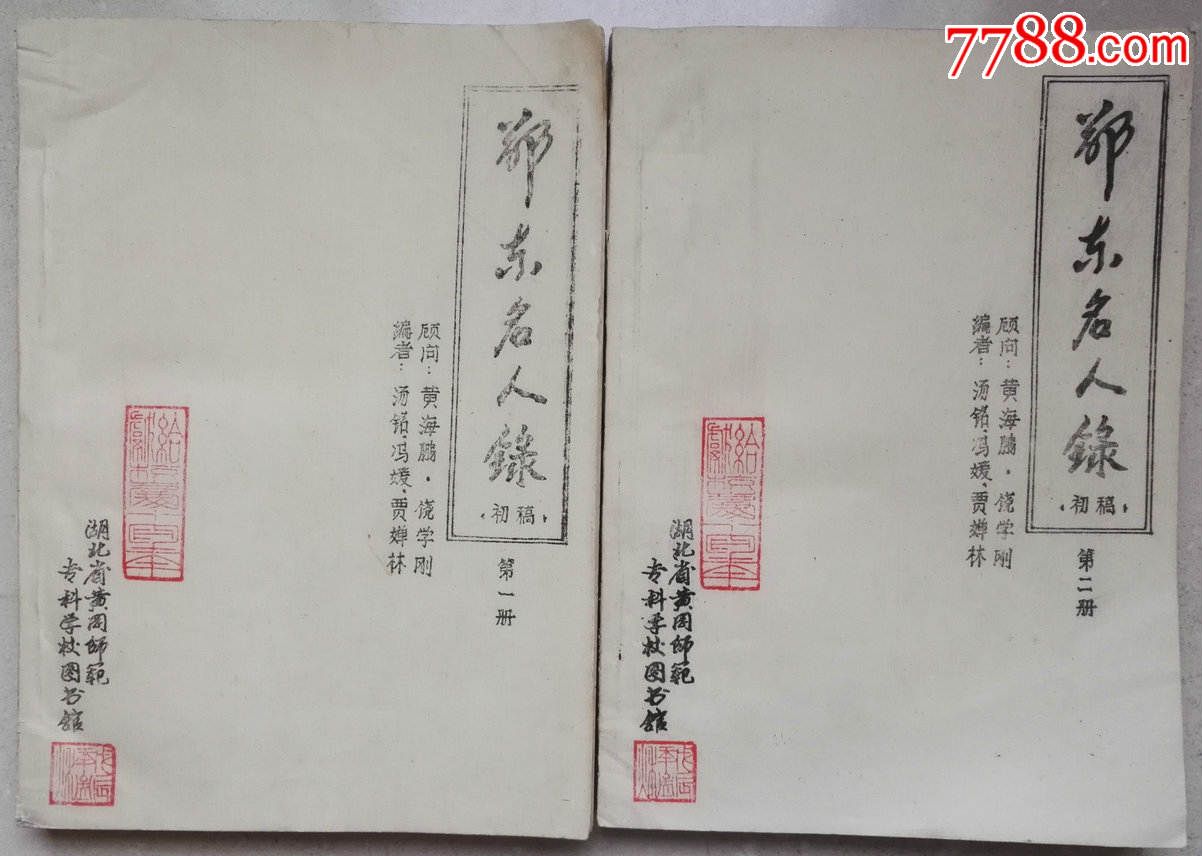 7788.com
鄂东名人錄
·初稿·
第一册
顾问：黄海鹏·饶学刚
编者：汤铭·冯媛·贾婵林
湖北省黄岡师範
专科学校图书館
鄂东名人錄
·初稿·
第二册
顾问：黄海鹏·饶学刚
编者：汤铭·冯媛·贾婵林
湖北省黄岡师範
专科学校图书館